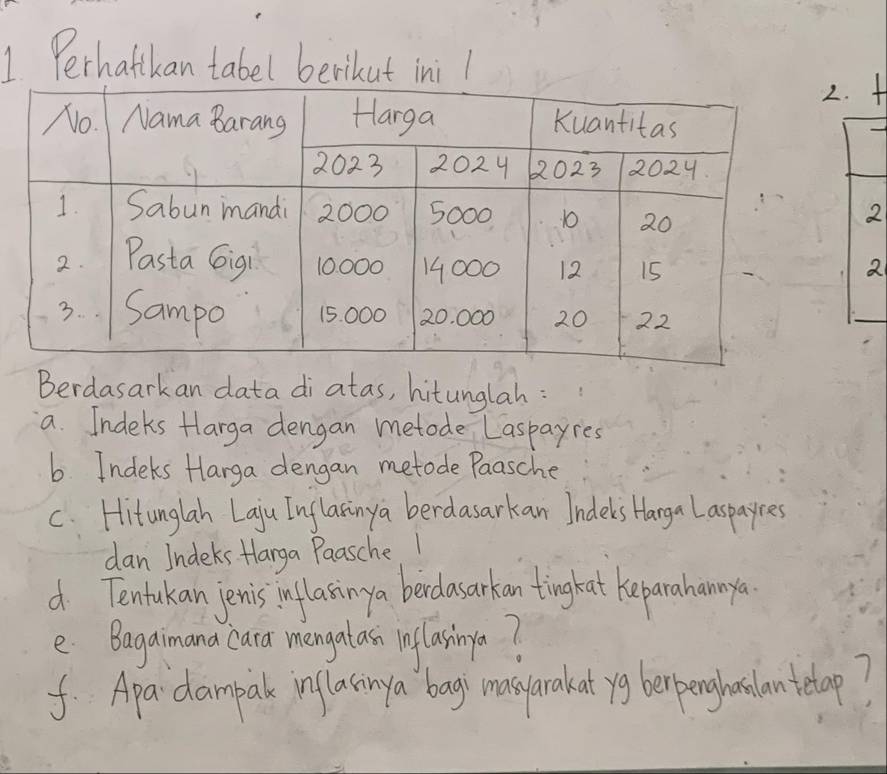 1. Perhatikan tabel berikut ini !
No. Nama Barang Harga Kuantitas
2023 2024 2023 2024
1. Sabun mandi 2000 5000 10 20
2. Pasta Gigi 10.000 14000 12 15
3. Sampo 15.000 20.000 20 22
Berdasarkan data di atas, hitunglah :
a. Indeks Harga dengan metode Laspayres
b. Indeks Harga dengan metode Paasche
c. Hitunglah Laju Inflasinya berdasarkan Indeks Harga Laspayres
dan Indeks Harga Paasche !
d. Tentukan jenis inflasinya berdasarkan tingkat keparahannya.
e. Bagaimana cara mengatasi inflasinya ?
f. Apa dampak inflasinya bagi masyarakat yg berpenghasilan tetap ?
2.
2
2